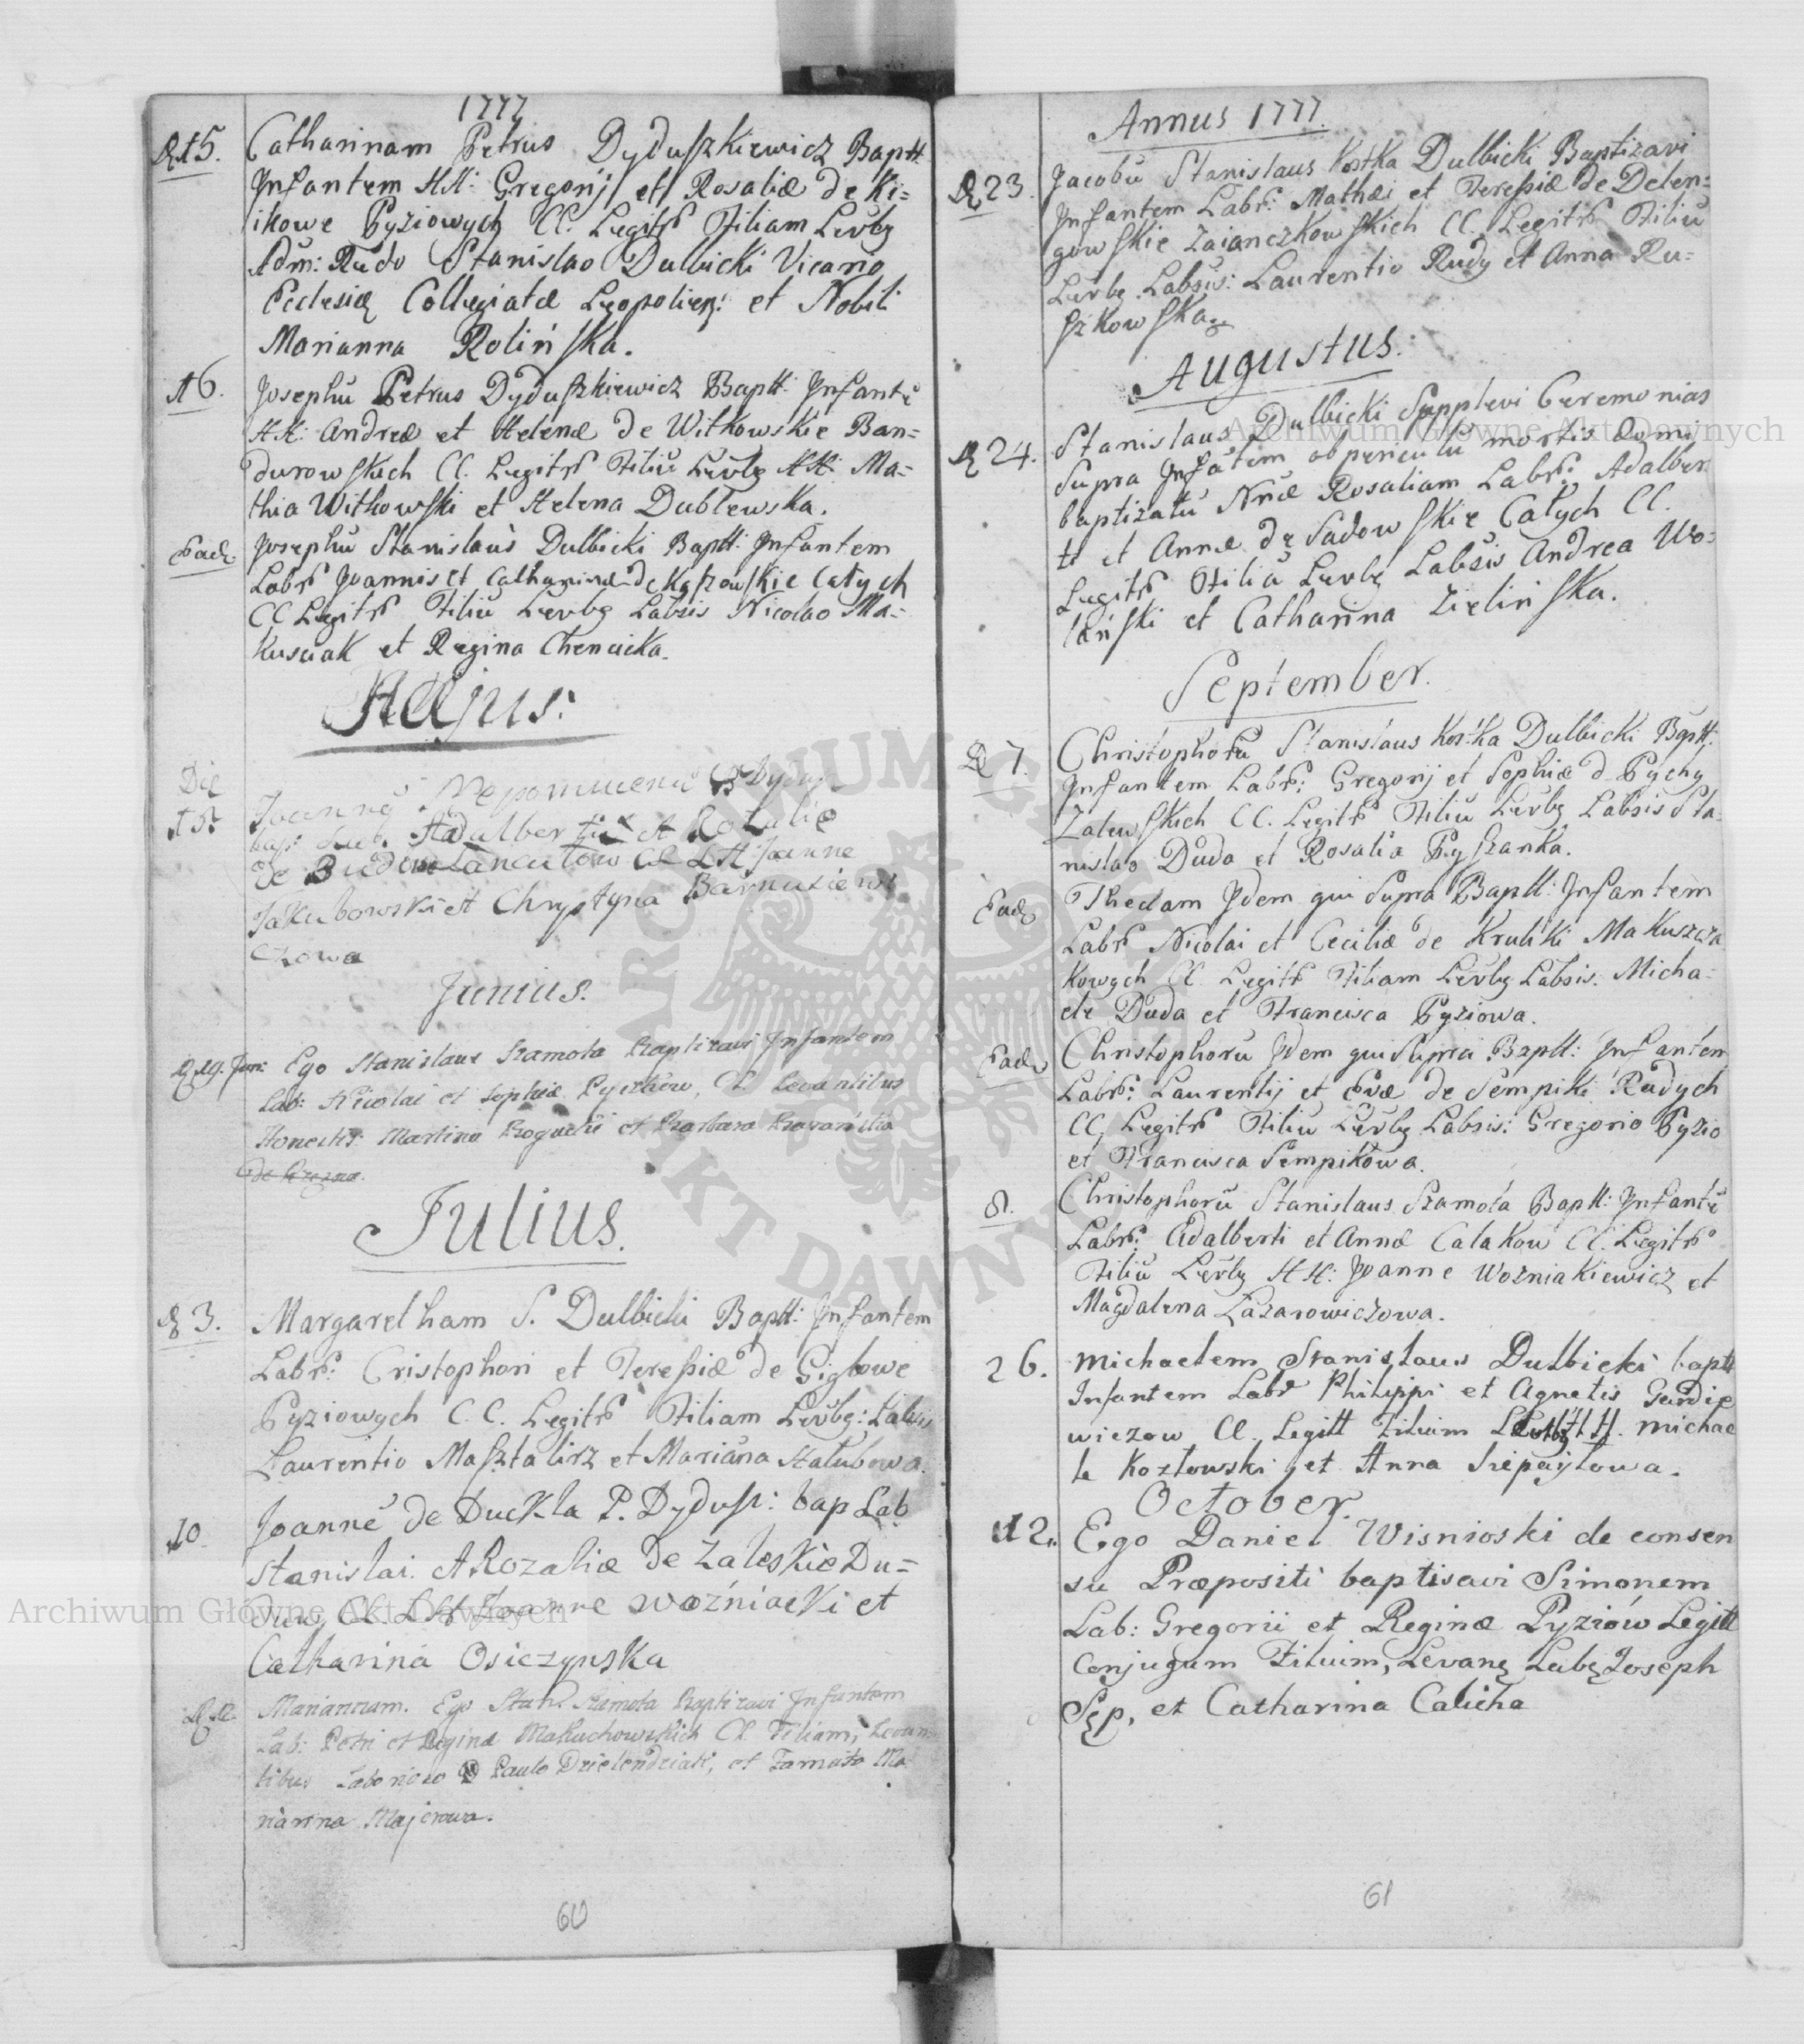 1777
D 15. Catharinam Petrus Dyduszkiewicz Baptt:
Infantem HH: Gregorij et Rosaliæ de Ki=
ikowe Pyziowych CC. Legitr Filiam Levbg
Adm: Rudo Stanislao Dulbicki Vicario
Ecclesiæ Collegiatæ Leopolien: et Nobili
Marianna Rolińska.
16. Josephū Petrus Dyduszkiewicz Baptt: Infantē
HH: Andreæ et Helenæ de Witkowskie Ban=
durowskich CC. Legitr Filiū Levbg HH: Ma=
thia Witkowski et Helena Dublewska.
Ead. Josephū Stanislaus Dulbicki Baptt: Infantem
Labr Joannis et Catharinæ de Kaszowskie Całych
CC Legitr Filiū Levbg Labsis Nicolao Ma=
kusciak et Regina Chencicka.
Majus:
Die 15 Joannē Nepomucenū P Dydusz
bap: Lab. Adalberti et Rozaliæ
de Budow Lancutow CC LH Joanne
Jakubowski et Chryptyna Barnasiewi
czowa
Junius.
D 29. Jun: Ego Stanislaus Szamota Baptizavi Infantem
Lab: Nicolai et Sophiæ Pyziaców, CC. Levantibus
Honestis: Martino Rogucki et Barbara
Julius.
D 3. Margaretham S. Dulbicki Baptt: Infantem
Labr: Cristophori et Teressiæ de Giglowe
Pyziowych C.C. Legitr Filiam Levbg: Labsis
Laurentio Masztalirz et Mariāna Hatubowa.
10. Joannē de Duckla P. Dydusz: bap Lab
Stanislai. et Rozaliæ de Zaleskie Du=
duw CC. LH Joanne Woźniacki et
Catharina Osiczynska
Mariannam. Ego Stan. Szamota Baptizavi Infantem
Lab: Petri et Reginæ Makuchowskich CC. Filiam, Levan
tibus Laborioso Paulo Dzielendziak, et Famata Ma
rianna Majerowa.
60
Annus 1777.
D 23. Jacobū Stanislaus Kostka Dulbicki Baptizavi
Infantem Labr: Mathæi et Teressiæ de Delen=
gowskie Zaianczkowskich CC. Legitr Filiū
Levbg Labsis: Laurentio Rudy et Anna Ru=
szkowska.
Augustus.
D 24. Stanislaus Dulbicki Supplevi Ceremonias
Supra Infātem ob periculū mortis domi
baptizatū Nrūæ Rosaliam Labr: Adalber
ti et Annæ de Sadowskie Całych CC.
Legitr Filiā Levbg Labsis Andrea Wo=
lański et Catharina Zielińska.
September.
D 7. Christophorū Stanislaus Kostka Dulbicki Baptt:
Infantem Labr: Gregorij et Sophiæ d Pychy
Zalewskich CC. Legitr Filiū Levbg Labsis Sta
nislao Duda et Rosalia Pyszanka.
Ead. Theclam Idem qui Supra Baptt: Infantem
Labr Nicolai et Ceciliæ de Kruliki Makuszcza
kowych CC Legitr Filiam Levbg Labsis. Micha=
ele Duda et Francisca Pyziowa.
Ead. Christophorū Idem qui Supra Baptt: Infantem
Labr: Laurentij et Evæ de Sempiki Rudych
CC. Legitr Filiū Levbg Labsis: Gregorio Pyzio
et Francisca Sempikowa.
8. Christophorū Stanislaus Szamota Baptt: Infantē
Labr: Adalberti et Annæ Calakow CC. Legitr
Filiū Levbg HH: Joanne Wozniakiewicz et
Magdalena Lazarowiczowa.
26. Michaelem Stanislaus Dulbicki baptt
Infantem Labr Philippi et Agnetis Gardzie
wiczow CC. Legitt Filium Levbg HH. Michae
le Kozlowski et Anna Siepaytowa.
October.
12. Ego Daniel Wisnioski de consen
su Præpositi baptisavi Simonem
Lab: Gregorii et Reginæ Pyziów Legitt
Conjugum Filium, Levang Labg Joseph
Sęp, et Catharina Calicha
61
Archiwum Główne Akt Dawnych
Archiwum Główne Akt Dawnych
ARCHIWUM GŁÓWNE AKT DAWNYCH